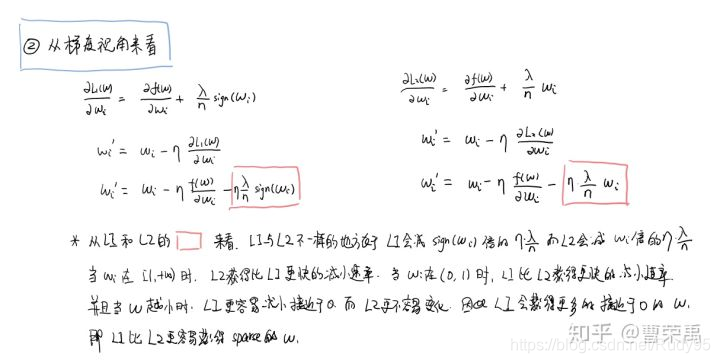 ② 从梯度视角来看
∂L₁(w)/∂wᵢ = ∂f(w)/∂wᵢ + λ/n sign(wᵢ)
wᵢ' = wᵢ - η ∂L₁(w)/∂wᵢ
wᵢ' = wᵢ - η f(w)/∂wᵢ - η λ/n sign(wᵢ)
∂L₂(w)/∂wᵢ = ∂f(w)/∂wᵢ + λ/n wᵢ
wᵢ' = wᵢ - η ∂L₂(w)/∂wᵢ
wᵢ' = wᵢ - η f(w)/∂wᵢ - η·λ/n wᵢ
* 从L1和L2的 来看, L1与L2不一样的地方在于L1会减sign(wᵢ)倍的η·λ/n 而L2会减wᵢ倍的η·λ/n
当wᵢ在[1,+∞)时, L2获得比L1更快的减小速率. 当wᵢ在(0,1)时, L1比L2获得更快的减小速率
并且当w越小时, L1更容易减小接近于0. 而L2更不容易变化. 因此L1会获得更多的接近于0的w.
即L1比L2更容易获得sparse的w.
知乎 @曹荣禹
https://blog.csdn.net/Rudy95